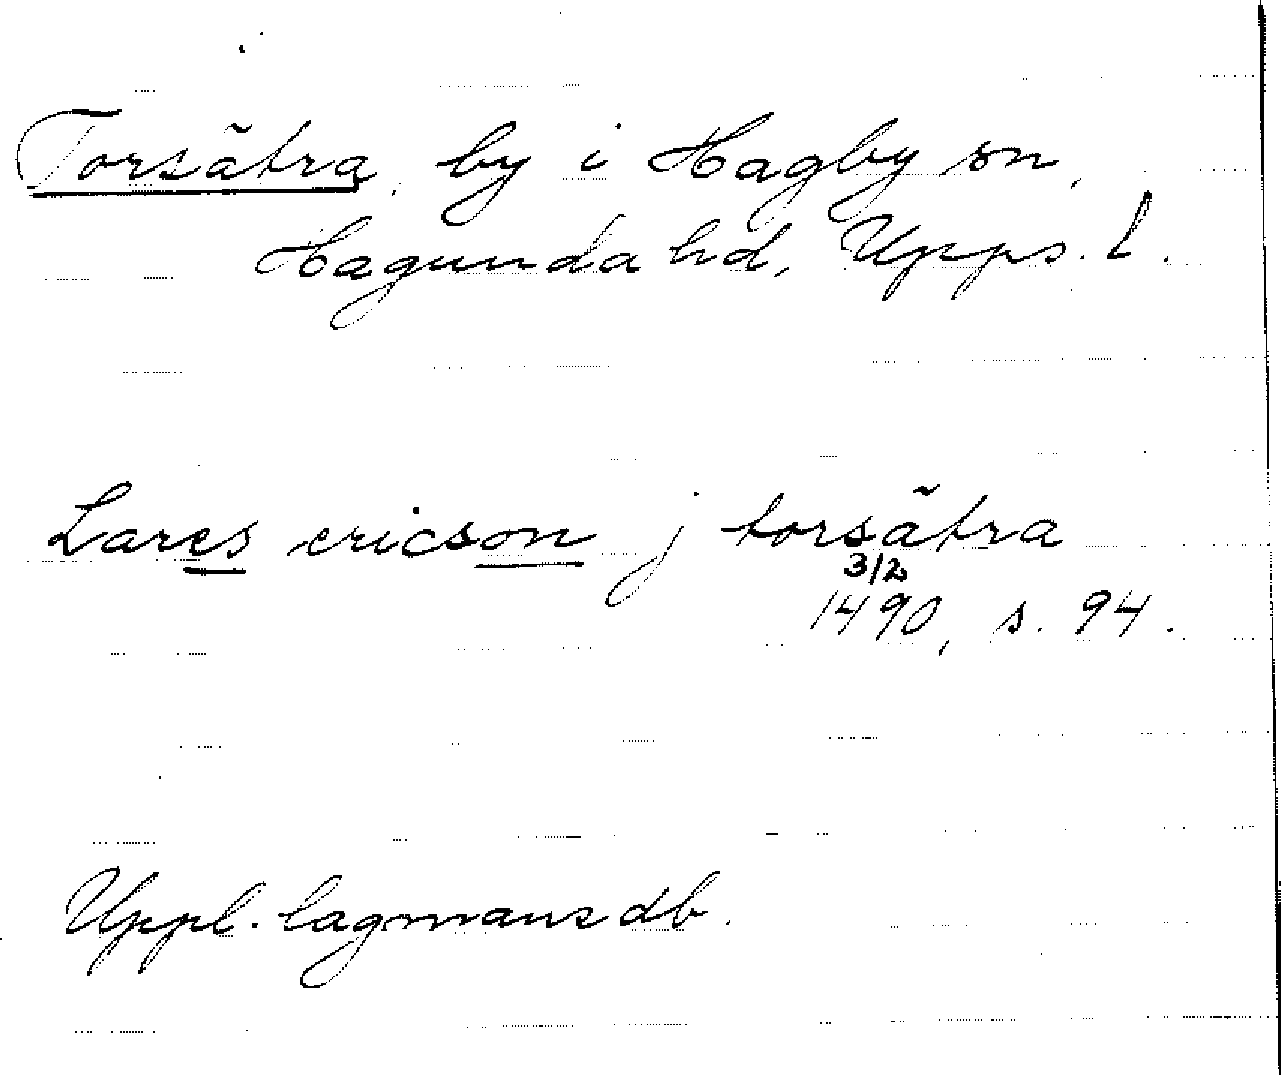 Torsätra, by i Hagby sn,
Hagunda hd, Upps. l.
Lares ericson j torsätra
3/2
1490, s. 94.
Uppl. lagmansdb.